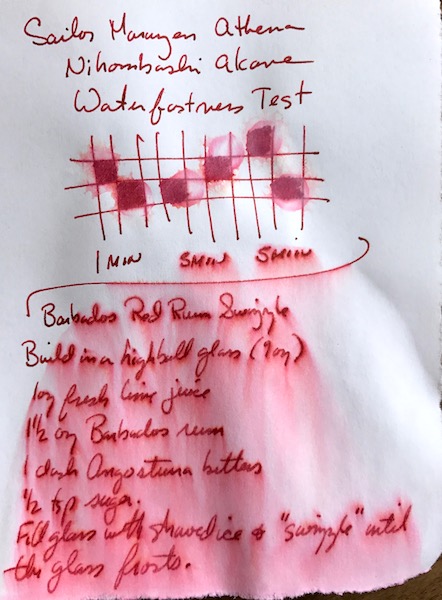 Sailor Maruzen Athena
Nihombashi Akane
Waterfastness Test
1 MIN 3MIN 5MIN
Barbados Red Rum Swizzle
Build in a highball glass (9oz)
1oz fresh lime juice
1 1/2 oz Barbados rum
1 dash Angostura bitters
1/2 tsp sugar.
Fill glass with shaved ice & "swizzle" until
the glass frosts.